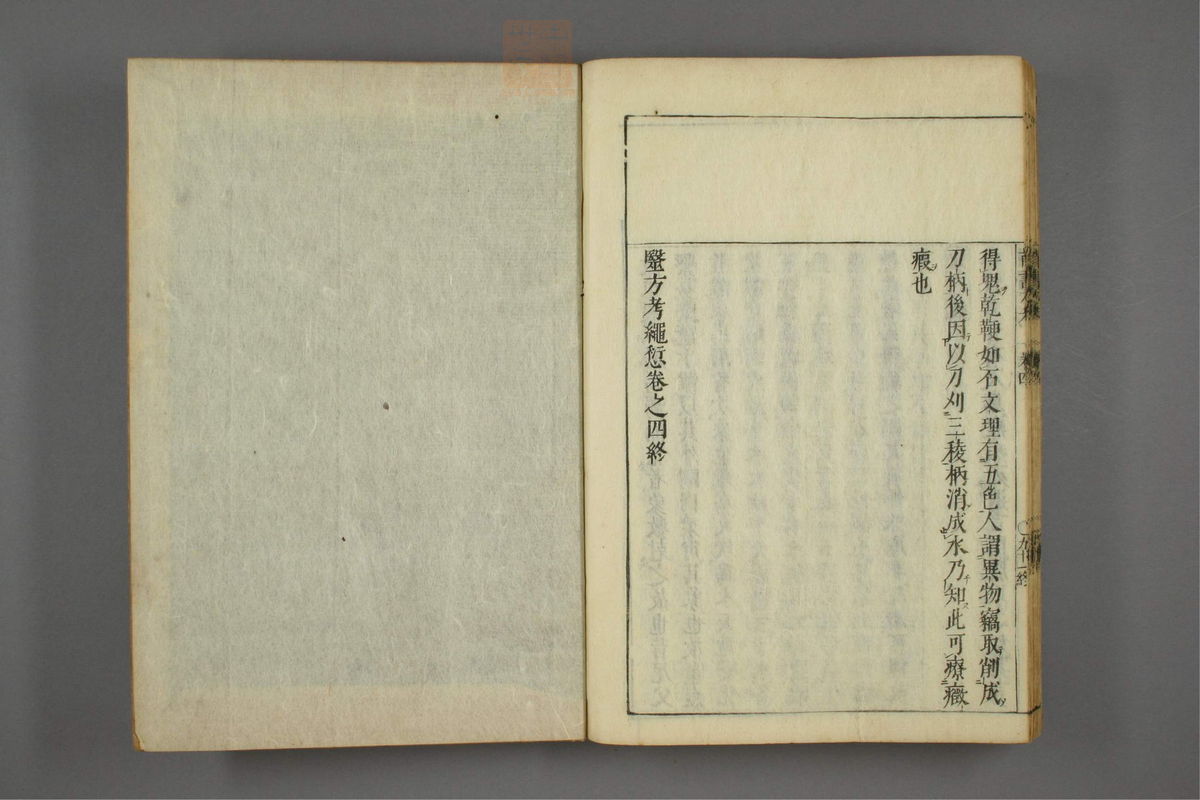 得鬼乾鞕如石文理有五色人謂異物竊取削成
刀柄後因以刀刈三稜柄消成水乃知此可療癥
瘕也
毉方考繩愆卷之四終
卷四
九十一終